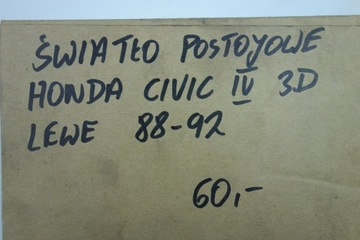 ŚWIATŁO POSTOJOWE
HONDA CIVIC IV 3D
LEWE 88-92
60,-